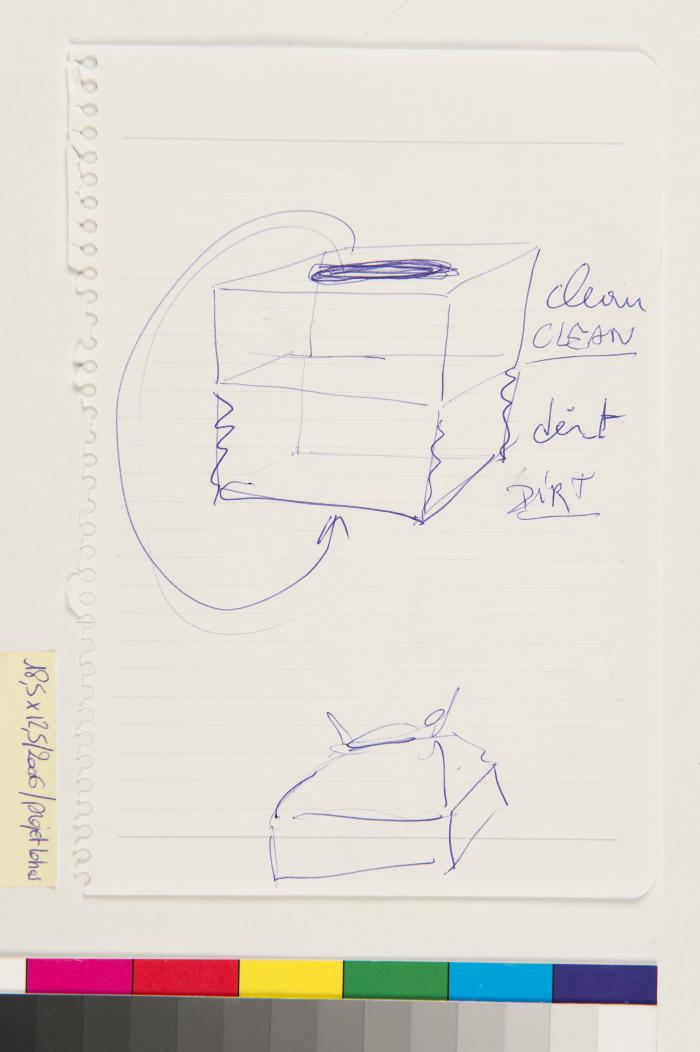 clean
CLEAN
dirt
DIRT
18,5 x 12,5/2006/projet lotus